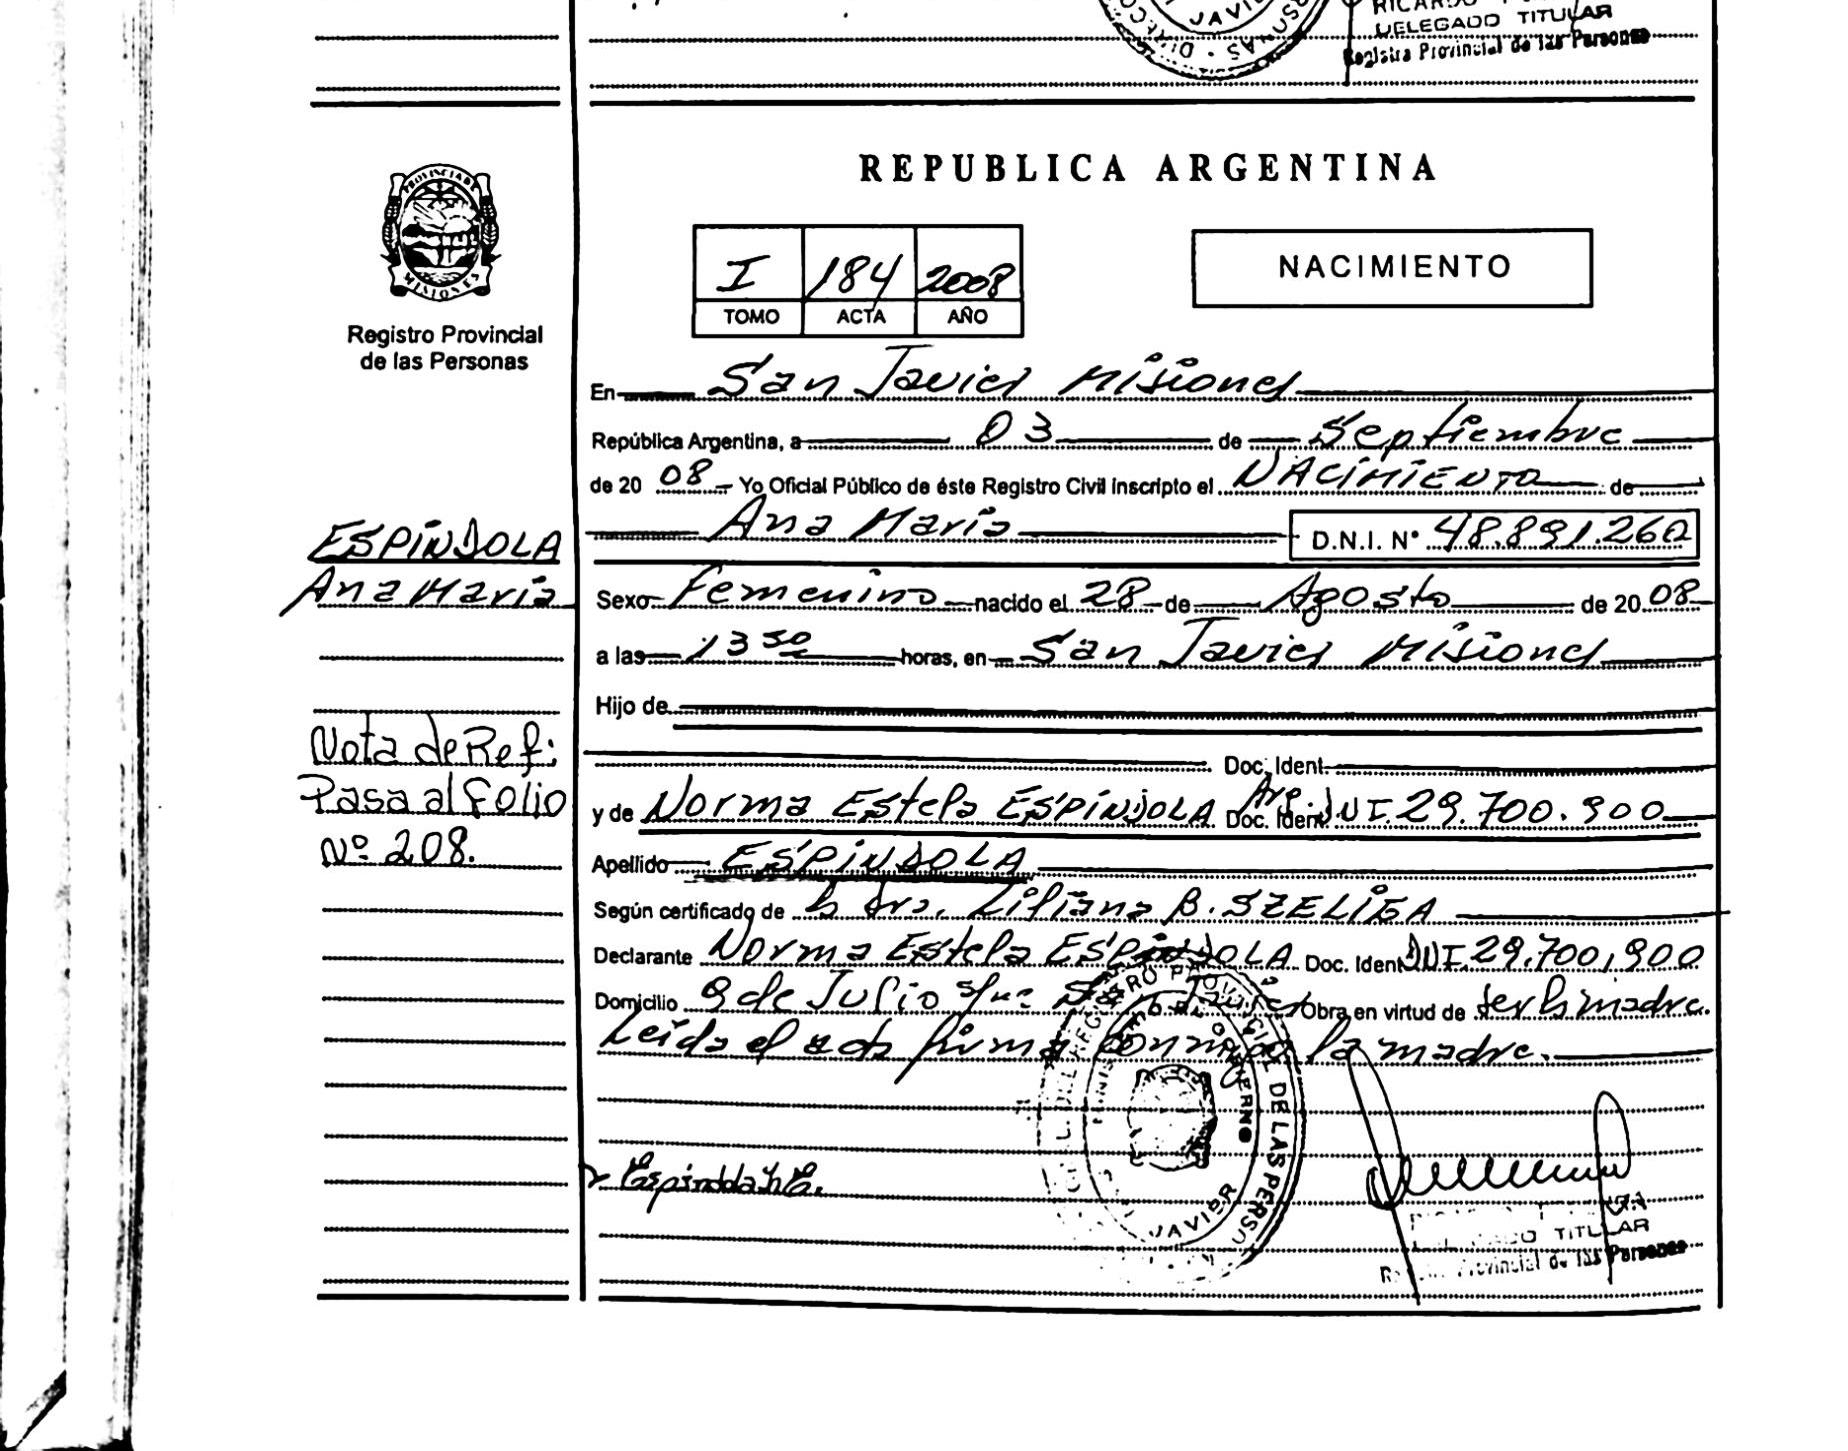 RICARDO
DELEGADO TITULAR
Registro Provincial de las Personas
JAVIER
REPUBLICA ARGENTINA
PROVINCIA DE
MISIONES
Registro Provincial
de las Personas
I 184 2008
TOMO ACTA AÑO
NACIMIENTO
En San Javier Misiones
República Argentina, a 03 de Septiembre
de 20 08 Yo Oficial Público de éste Registro Civil inscripto el NACIMIENTO de
Ana María D.N.I. N° 48.891.260
ESPÍNDOLA
Ana María
Sexo Femenino nacido el 28 de Agosto de 20 08
a las 13 50 horas, en San Javier Misiones
Hijo de
Doc. Ident.
Nota de Ref:
Pasa al Folio
Nº 208.
y de Norma Estela ESPÍNDOLA Doc. Ident. Arg. DNI. 29.700.900
Apellido ESPÍNDOLA
Según certificado de la Dra. Liliana B. SZELIGA
Declarante Norma Estela ESPÍNDOLA Doc. Ident DNI. 29.700,900
Domicilio 9 de Julio s/nº San Javier Obra en virtud de ser la madre.
Leída el acta firma conmigo la madre.
REGISTRO PROVINCIAL DE LAS PERSONAS
MINISTERIO DE GOBIERNO
JAVIER
Espindola N E.
TITULAR
Provincial de las Personas